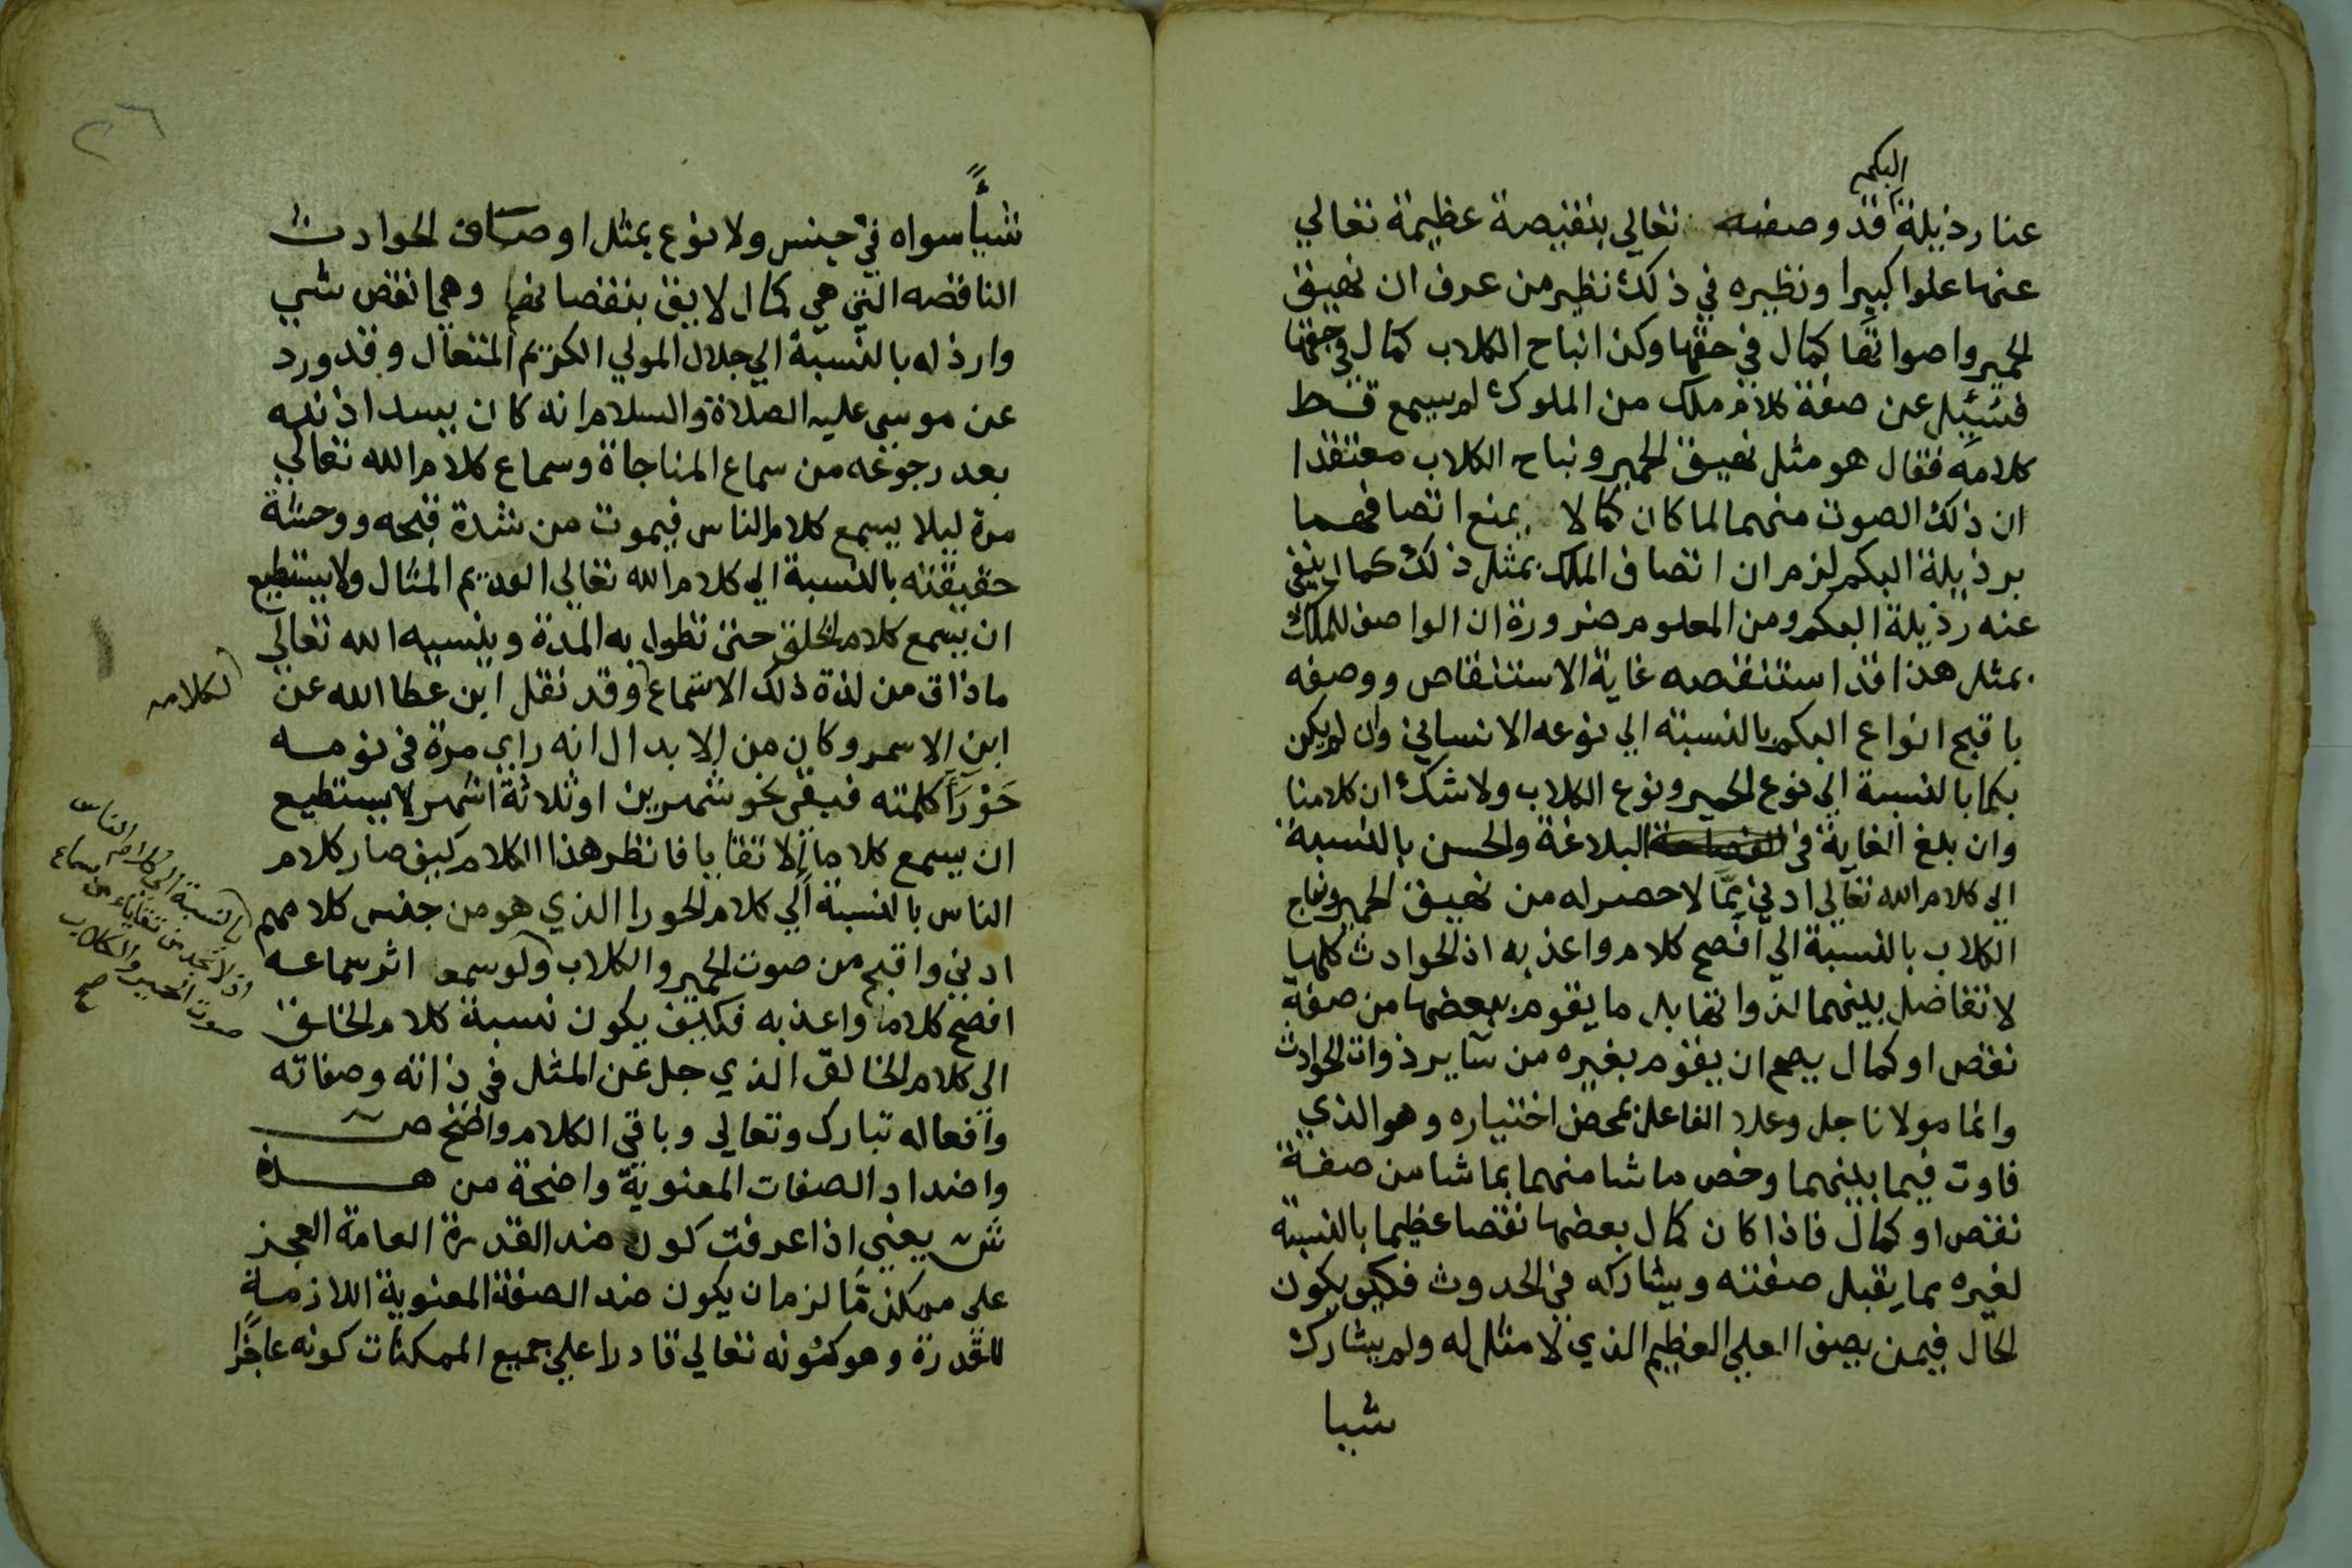 البكم
عنا رذيلة قد وصفه تعالي بنقيصة عظيمة تعالي
عنها علوا كبيرا ونظيره في ذلك نظير من عرف ان نهيق
الحمير واصواتها كمال في حقها وكذا نباح الكلاب كمال في حقها
فسئيل عن صفة كلام ملك من الملوك لم يسمع قط
كلامه فقال هو مثل نهيق الحمير ونباح الكلاب معتقدا
ان ذلك الصوت منهما لما كان كمالا يمنع اتصافهما
برذيلة البكم لزم ان اتصاف الملك بمثل ذلك كمال ينفي
عنه رذيلة البكم ومن المعلوم ضرورة ان الواصف للملك
بمثل هذا قد استنقصه غاية الاستنقاص ووصفه
باقبح انواع البكم بالنسبة الي نوعه الانساني وان لم يكن
بكما بالنسبة الي نوع الحمير ونوع الكلاب ولا شك ان كلامنا
وان بلغ الغاية في الفصاحة البلاغة والحسن بالنسبة
الي كلام الله تعالي ادني بما لا حصر له من نهيق الحمير ونباح
الكلاب بالنسبة الي افصح كلام واعذبه اذ الحوادث كلها
لا تفاضل بينهما لذواتها بل ما يقوم ببعضها من صفة
نقص او كمال يصح ان يقوم بغيره من ساير ذوات الحوادث
وانما مولانا جل وعلا الفاعل بمحض اختياره وهو الذي
فاوت فيما بينهما وخص ما شا منهما بما شا من صفة
نقص او كمال فاذا كان كمال بعضها نقصا عظيما بالنسبة
لغيره مما يقبل صفته ويشاركه في الحدوث فكيف يكون
الحال فيمن يصف العلي العظيم الذي لا مثل له ولم يشارك
شيا
٢٦
شيأ سواه في جنس ولا نوع بمثل اوصاف الحوادث
الناقصه التي هي كمال لايق بنقصانها وهي انقص شي
وارذله بالنسبة الي جلال المولي الكريم المتعال وقد ورد
عن موسى عليه الصلاة والسلام انه كان يسد اذنيه
بعد رجوعه من سماع المناجاة وسماع كلام الله تعالي
مدة ليلا يسمع كلام الناس فيموت من شدة قبحه ووحشة
حقيقته بالنسبة الي كلام الله تعالي العديم المثال ولا يستطيع
ان يسمع كلام الخلق حتى تطول به المدة وينسيه الله تعالي
ماذاق من لذة ذلك الاستماع وقد نقل ابن عطا الله عن
لكلامه
ابن الاسمر وكان من الابدال انه راي مرة في نومه
حورا كلمته فبقي نحو شهرين او ثلاثة اشهر لا يستطيع
ان يسمع كلاما الا تقايا فانظر هذا الكلام كيف صار كلام
الناس بالنسبة الي كلام الحورا الذي هو من جنس كلامهم
ادني واقبح من صوت الحمير والكلاب ولو سمع اثر سماعه
بالنسبة الي كلام الناس
اذ لا نجد من تقاياء من سماع
صوت الحمير والكلاب
صح
افصح كلام واعذبه فكيف يكون نسبة كلام الخالق
الى كلام الخالق الذي جل عن المثل في ذاته وصفاته
وافعاله تبارك وتعالي وباقي الكلام واضح ص
واضداد الصفات المعنوية واضحة من هذه
ش يعني اذا عرفت كون ضد القدرة العامة العجز
على ممكن ما لزم ان يكون ضد الصفة المعنوية اللازمة
للقدرة وهو كونه تعالي قادرا علي جميع الممكنات كونه عاجزا